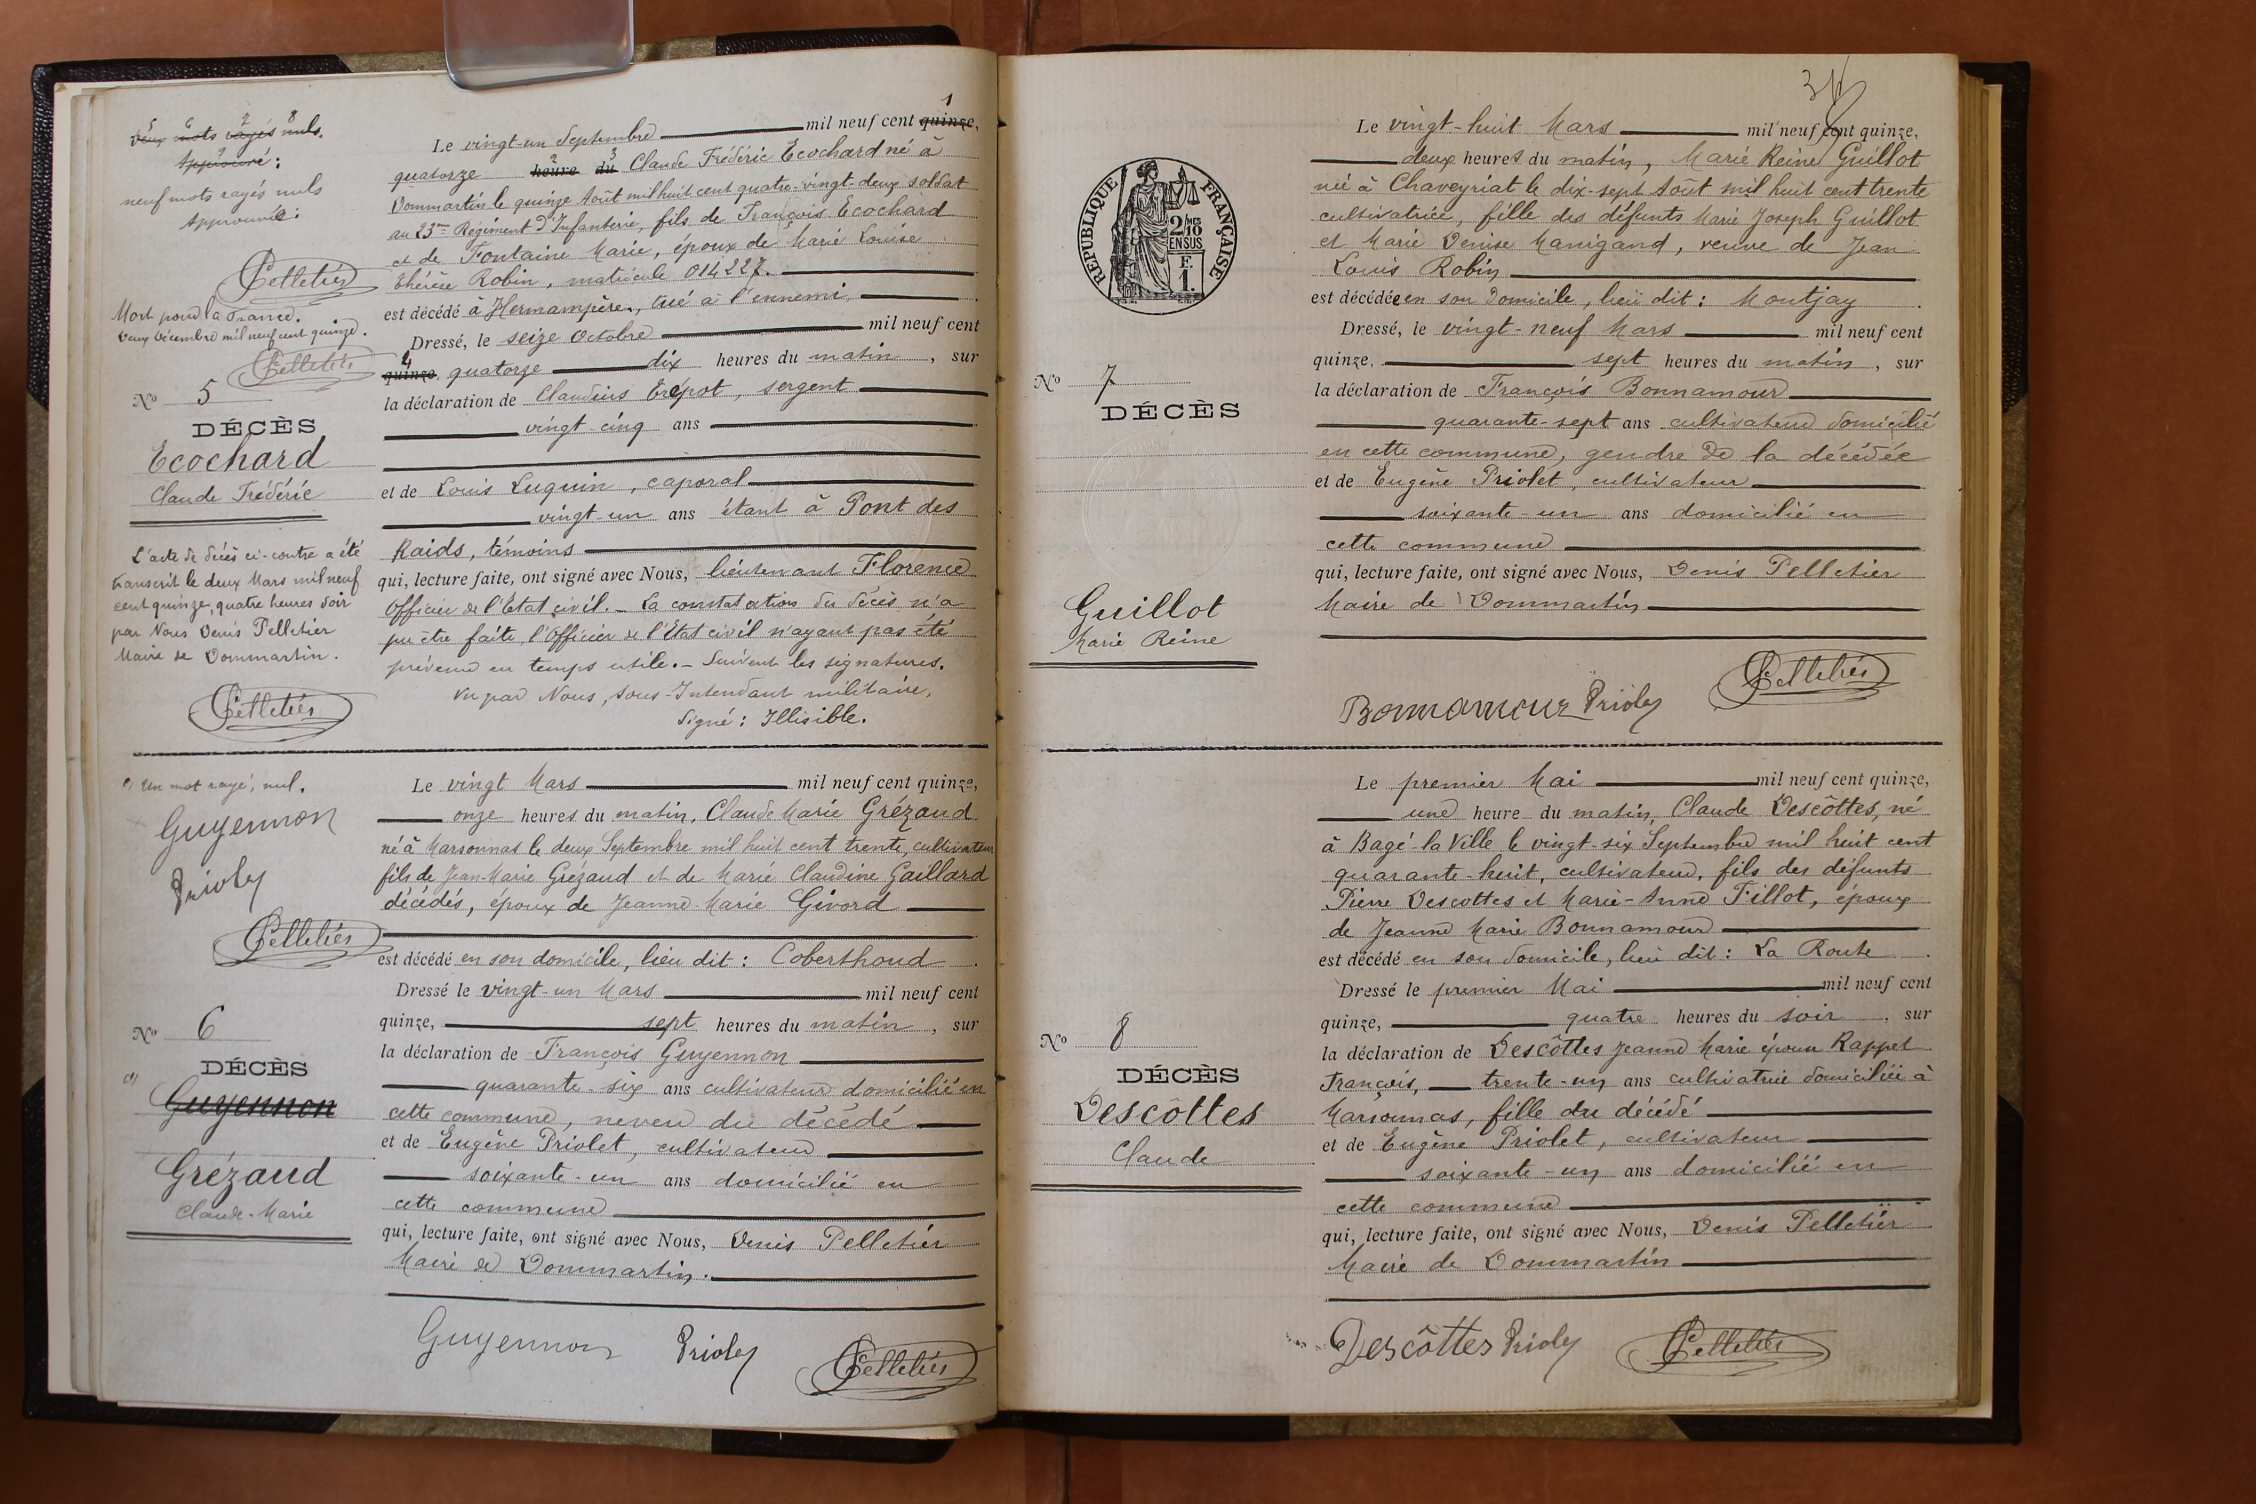 deux mots rayés nuls.
Approuvé :
neuf mots rayés nuls
Approuvé :
Pelletier
Mort pour la France.
deux Décembre mil neuf cent quinze.
Pelletier
N° 5
DÉCÈS
Ecochard
Claude Frédéric
L'acte de décès ci-contre a été
transcrit le deux Mars mil neuf
cent quinze, quatre heures soir
par Nous Denis Pelletier
Maire de Dommartin.
Pelletier
Le vingt-un Septembre mil neuf cent quinze,
quatorze heure du Claude Frédéric Ecochard né à
Dommartin le quinze Août mil huit cent quatre-vingt-deux soldat
au 23me Régiment d'Infanterie, fils de François Ecochard
et de Fontaine Marie, époux de Marie Louise
Thérèse Robin, matricule 014227.
est décédé à Hermampère, tué à l'ennemi
Dressé, le seize Octobre mil neuf cent
quinze, quatorze dix heures du matin, sur
la déclaration de Claudius Crépot, sergent
vingt-cinq ans
et de Louis Luquin, caporal
vingt-un ans étant à Pont des
Raids, témoins
qui, lecture faite, ont signé avec Nous, lieutenant Florence
Officier de l'Etat civil. - La constatation du décès n'a
pu être faite, l'Officier de l'Etat civil n'ayant pas été
prévenu en temps utile. - Suivent les signatures.
Vu par Nous, Sous-Intendant militaire,
Signé : Illisible.
(1) Un mot rayé, nul.
Guyennon
Priolet
Pelletier
N° 6
DÉCÈS
(1)
Guyennon
Grézaud
Claude-Marie
Le vingt Mars mil neuf cent quinze,
onze heures du matin, Claude Marie Grézaud
né à Marsonnas le deux Septembre mil huit cent trente, cultivateur
fils de Jean-Marie Grézaud et de Marie Claudine Gaillard
décédés, époux de Jeanne-Marie Givord
est décédé en son domicile, lieu dit : Coberthoud.
Dressé le vingt-un Mars mil neuf cent
quinze, sept heures du matin, sur
la déclaration de François Guyennon
quarante-six ans cultivateur domicilié en
cette commune, neveu du décédé
et de Eugène Priolet, cultivateur
soixante-un ans domicilié en
cette commune
qui, lecture faite, ont signé avec Nous, Denis Pelletier
Maire de Dommartin.
Guyennon Priolet Pelletier
RÉPUBLIQUE FRANÇAISE
2/10 MES
EN SUS
F.
1.
N° 7
DÉCÈS
Guillot
Marie Reine
Le vingt-huit Mars mil neuf cent quinze,
deux heures du matin, Marie Reine Guillot
née à Chaveyriat le dix-sept Août mil huit cent trente
cultivatrice, fille des défunts Marie Joseph Guillot
et Marie Denise Manigand, veuve de Jean
Louis Robin
est décédée en son domicile, lieu dit : Montjay.
Dressé, le vingt-neuf Mars mil neuf cent
quinze, sept heures du matin, sur
la déclaration de François Bonnamour
quarante-sept ans cultivateur domicilié
en cette commune, gendre de la décédée
et de Eugène Priolet, cultivateur
soixante-un ans domicilié en
cette commune
qui, lecture faite, ont signé avec Nous, Denis Pelletier
Maire de Dommartin
Bonnamour Priolet Pelletier
N° 8
DÉCÈS
Descôttes
Claude
Le premier Mai mil neuf cent quinze,
une heure du matin, Claude Descôttes, né
à Bagé-la-Ville le vingt-six Septembre mil huit cent
quarante-huit, cultivateur, fils des défunts
Pierre Descottes et Marie-Anne Fillot, époux
de Jeanne Marie Bonnamour
est décédé en son domicile, lieu dit : La Route.
Dressé le premier Mai mil neuf cent
quinze, quatre heures du soir, sur
la déclaration de Descôttes Jeanne Marie épouse Rappet
François, trente-un ans cultivatrice domiciliée à
Marsonnas, fille du décédé
et de Eugène Priolet, cultivateur
soixante-un ans domicilié en
cette commune
qui, lecture faite, ont signé avec Nous, Denis Pelletier
Maire de Dommartin
Descôttes Priolet Pelletier